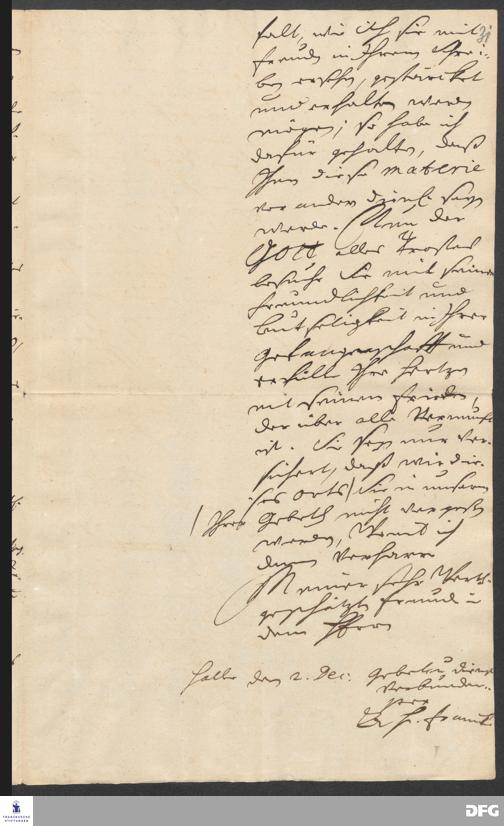 31
falt, wie ich sie mit
freuden in Ihrem Schrei-
ben ersehe, gestärcket
und erhalten werden
mögen; so habe ich
dafür gehalten, daß
Ihnen diese materie
vor andern dienl. seyn
werde. Nun der
GOtt alles Trostes
besuche Sie mit seiner
freundlichkeit und
Leutseligkeit in Ihrer
Gefangenschafft und
erfülle Ihre Hertzen
mit seinem frieden,
der über alle Vernunft
ist. Sie seyn nur ver-
sichert, daß wir die-
ses Orts Sie in unserm
/ Ihrer Gebeth nicht vergeßen
werden, Womit ich
denn verharre
Meiner sehr Werth-
geschätzten freunde
dem Herrn
Halle den 2. Dec. Gebet u. dienst
verbunden-
ster
A. H. Francke
FRANCKESCHE STIFTUNGEN
DFG